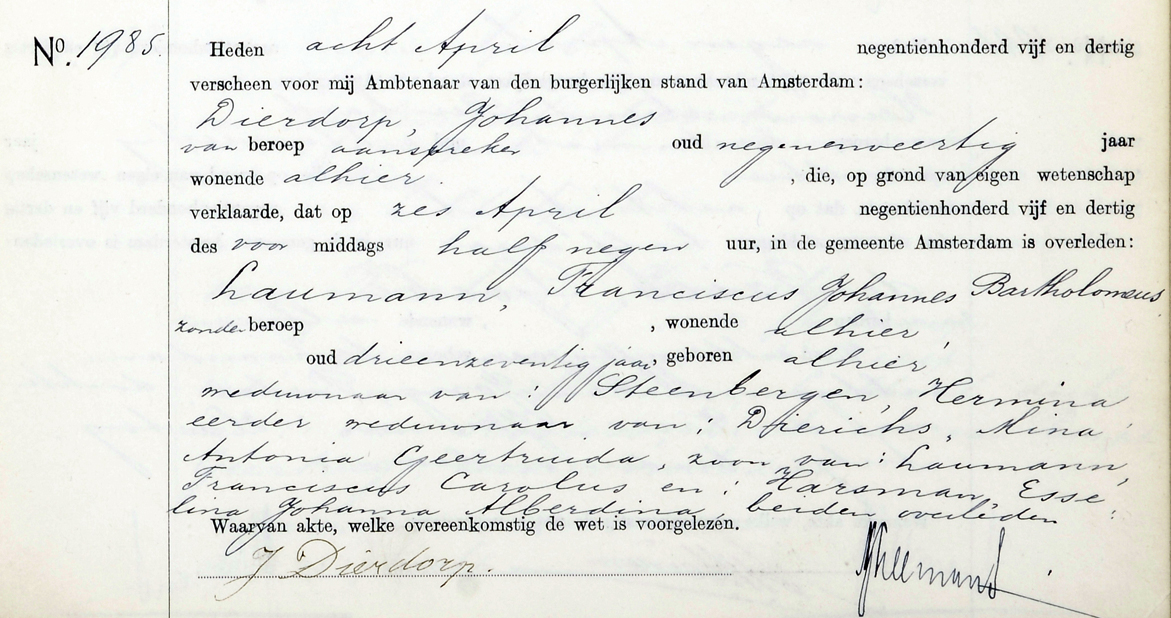 No. 1985. Heden acht April negentienhonderd vijf en dertig
verscheen voor mij Ambtenaar van den burgerlijken stand van Amsterdam:
Dierdorp, Johannes
van beroep aanspreker oud negenenveertig jaar
wonende alhier , die, op grond van eigen wetenschap
verklaarde, dat op zes April negentienhonderd vijf en dertig
des voor middags half negen uur, in de gemeente Amsterdam is overleden:
Laumann, Franciscus Johannes Bartholomeus,
zonder beroep , wonende alhier,
oud drieenzeventig jaar, geboren alhier,
weduwnaar van: Steenbergen, Hermina
eerder weduwnaar van: Dierichs, Mina
Antonia Geertruida, zoon van: Laumann,
Franciscus Carolus en: Harsman, Esse
lina Johanna Alberdina, beiden overleden.
Waarvan akte, welke overeenkomstig de wet is voorgelezen.
J Dierdorp.